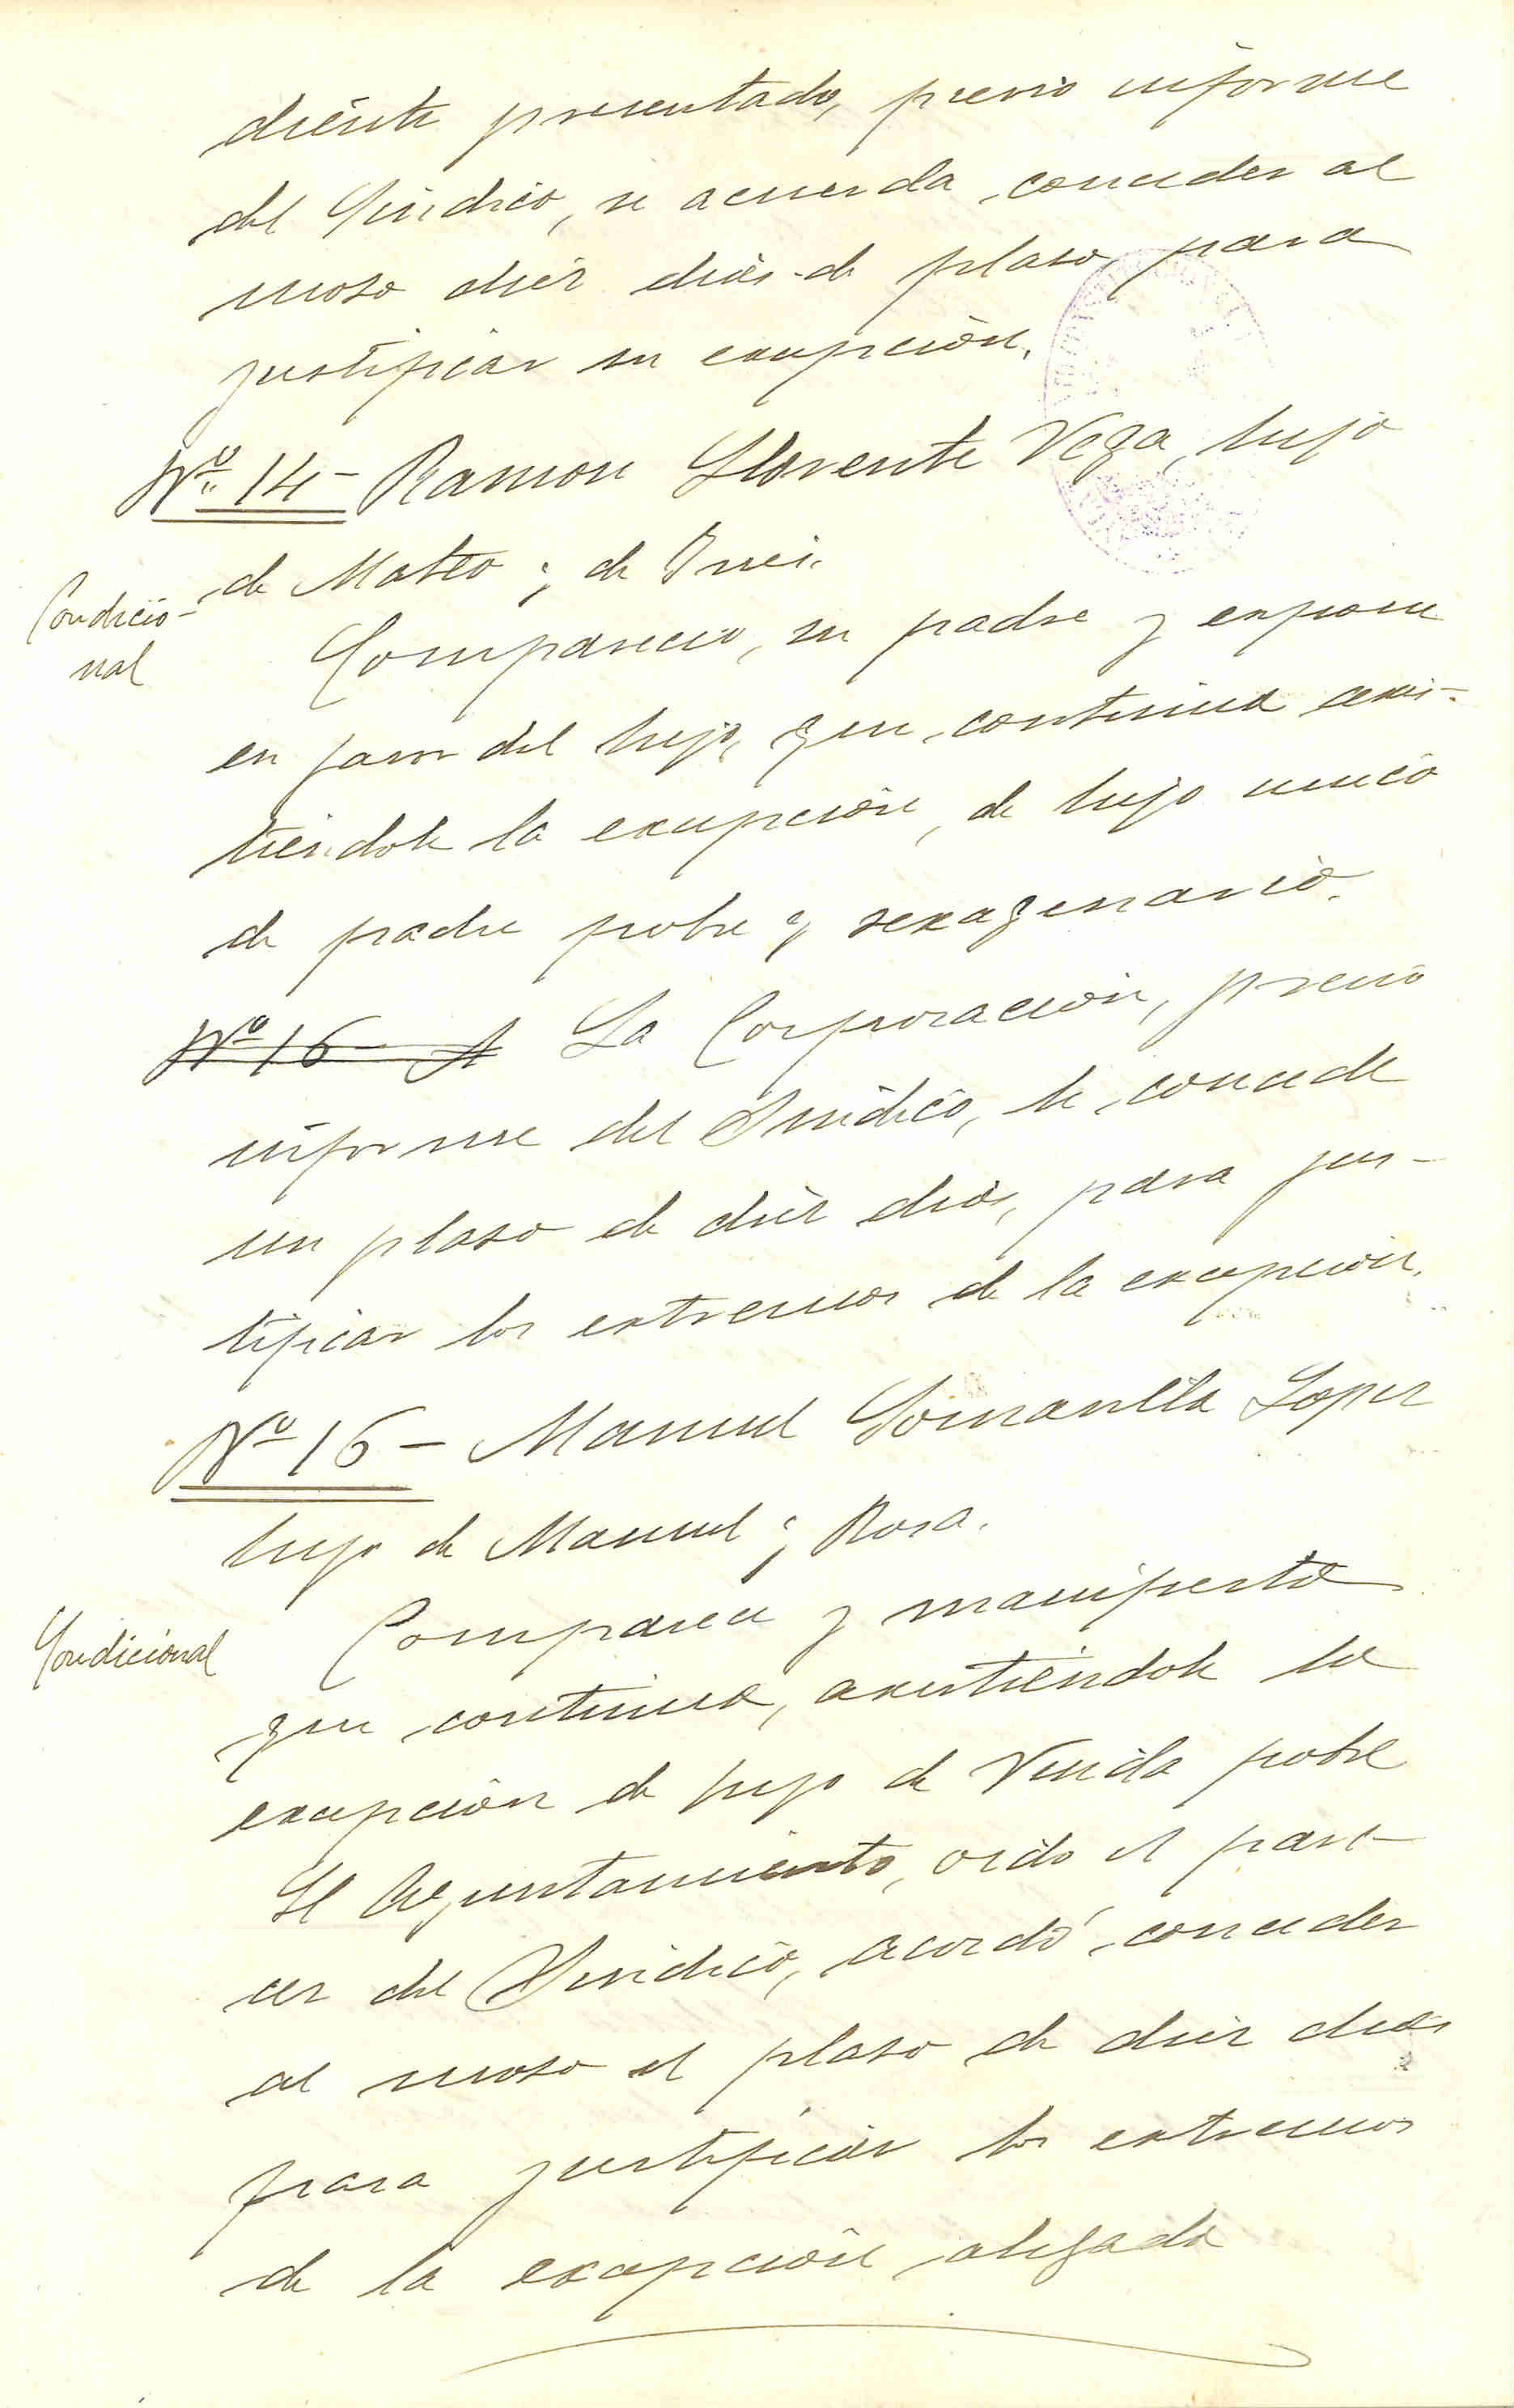 diente presentado, previo informe
del Sindico, se acuerda conceder al
moso diez dias de plaso para
justificar su excepción.
Nº 14 - Ramon Llorente Vega, hijo
de Mateo y de Ines.
Condicio-
nal
Comparecio, su padre y expone
en favor del hijo, que continua asis-
tiendole la excepción, de hijo unico
de padre pobre y sexagenario.
Nº 16 - A La Corporación, previo
informe del Sindico, le concede
un plaso de diez dias, para jus-
tificar los extremos de la excepción.
Nº 16 - Manuel Somavilla Lopez
hijo de Manuel y Rosa.
Condicional
Comparece y manifesta
que continua, asistiendole la
excepción de hijo de Viuda pobre
El Ayuntamiento, oido el pare-
cer del Sindico, acordó conceder
al moso el plaso de diez dias
para justificar los extremos
de la excepción alegada